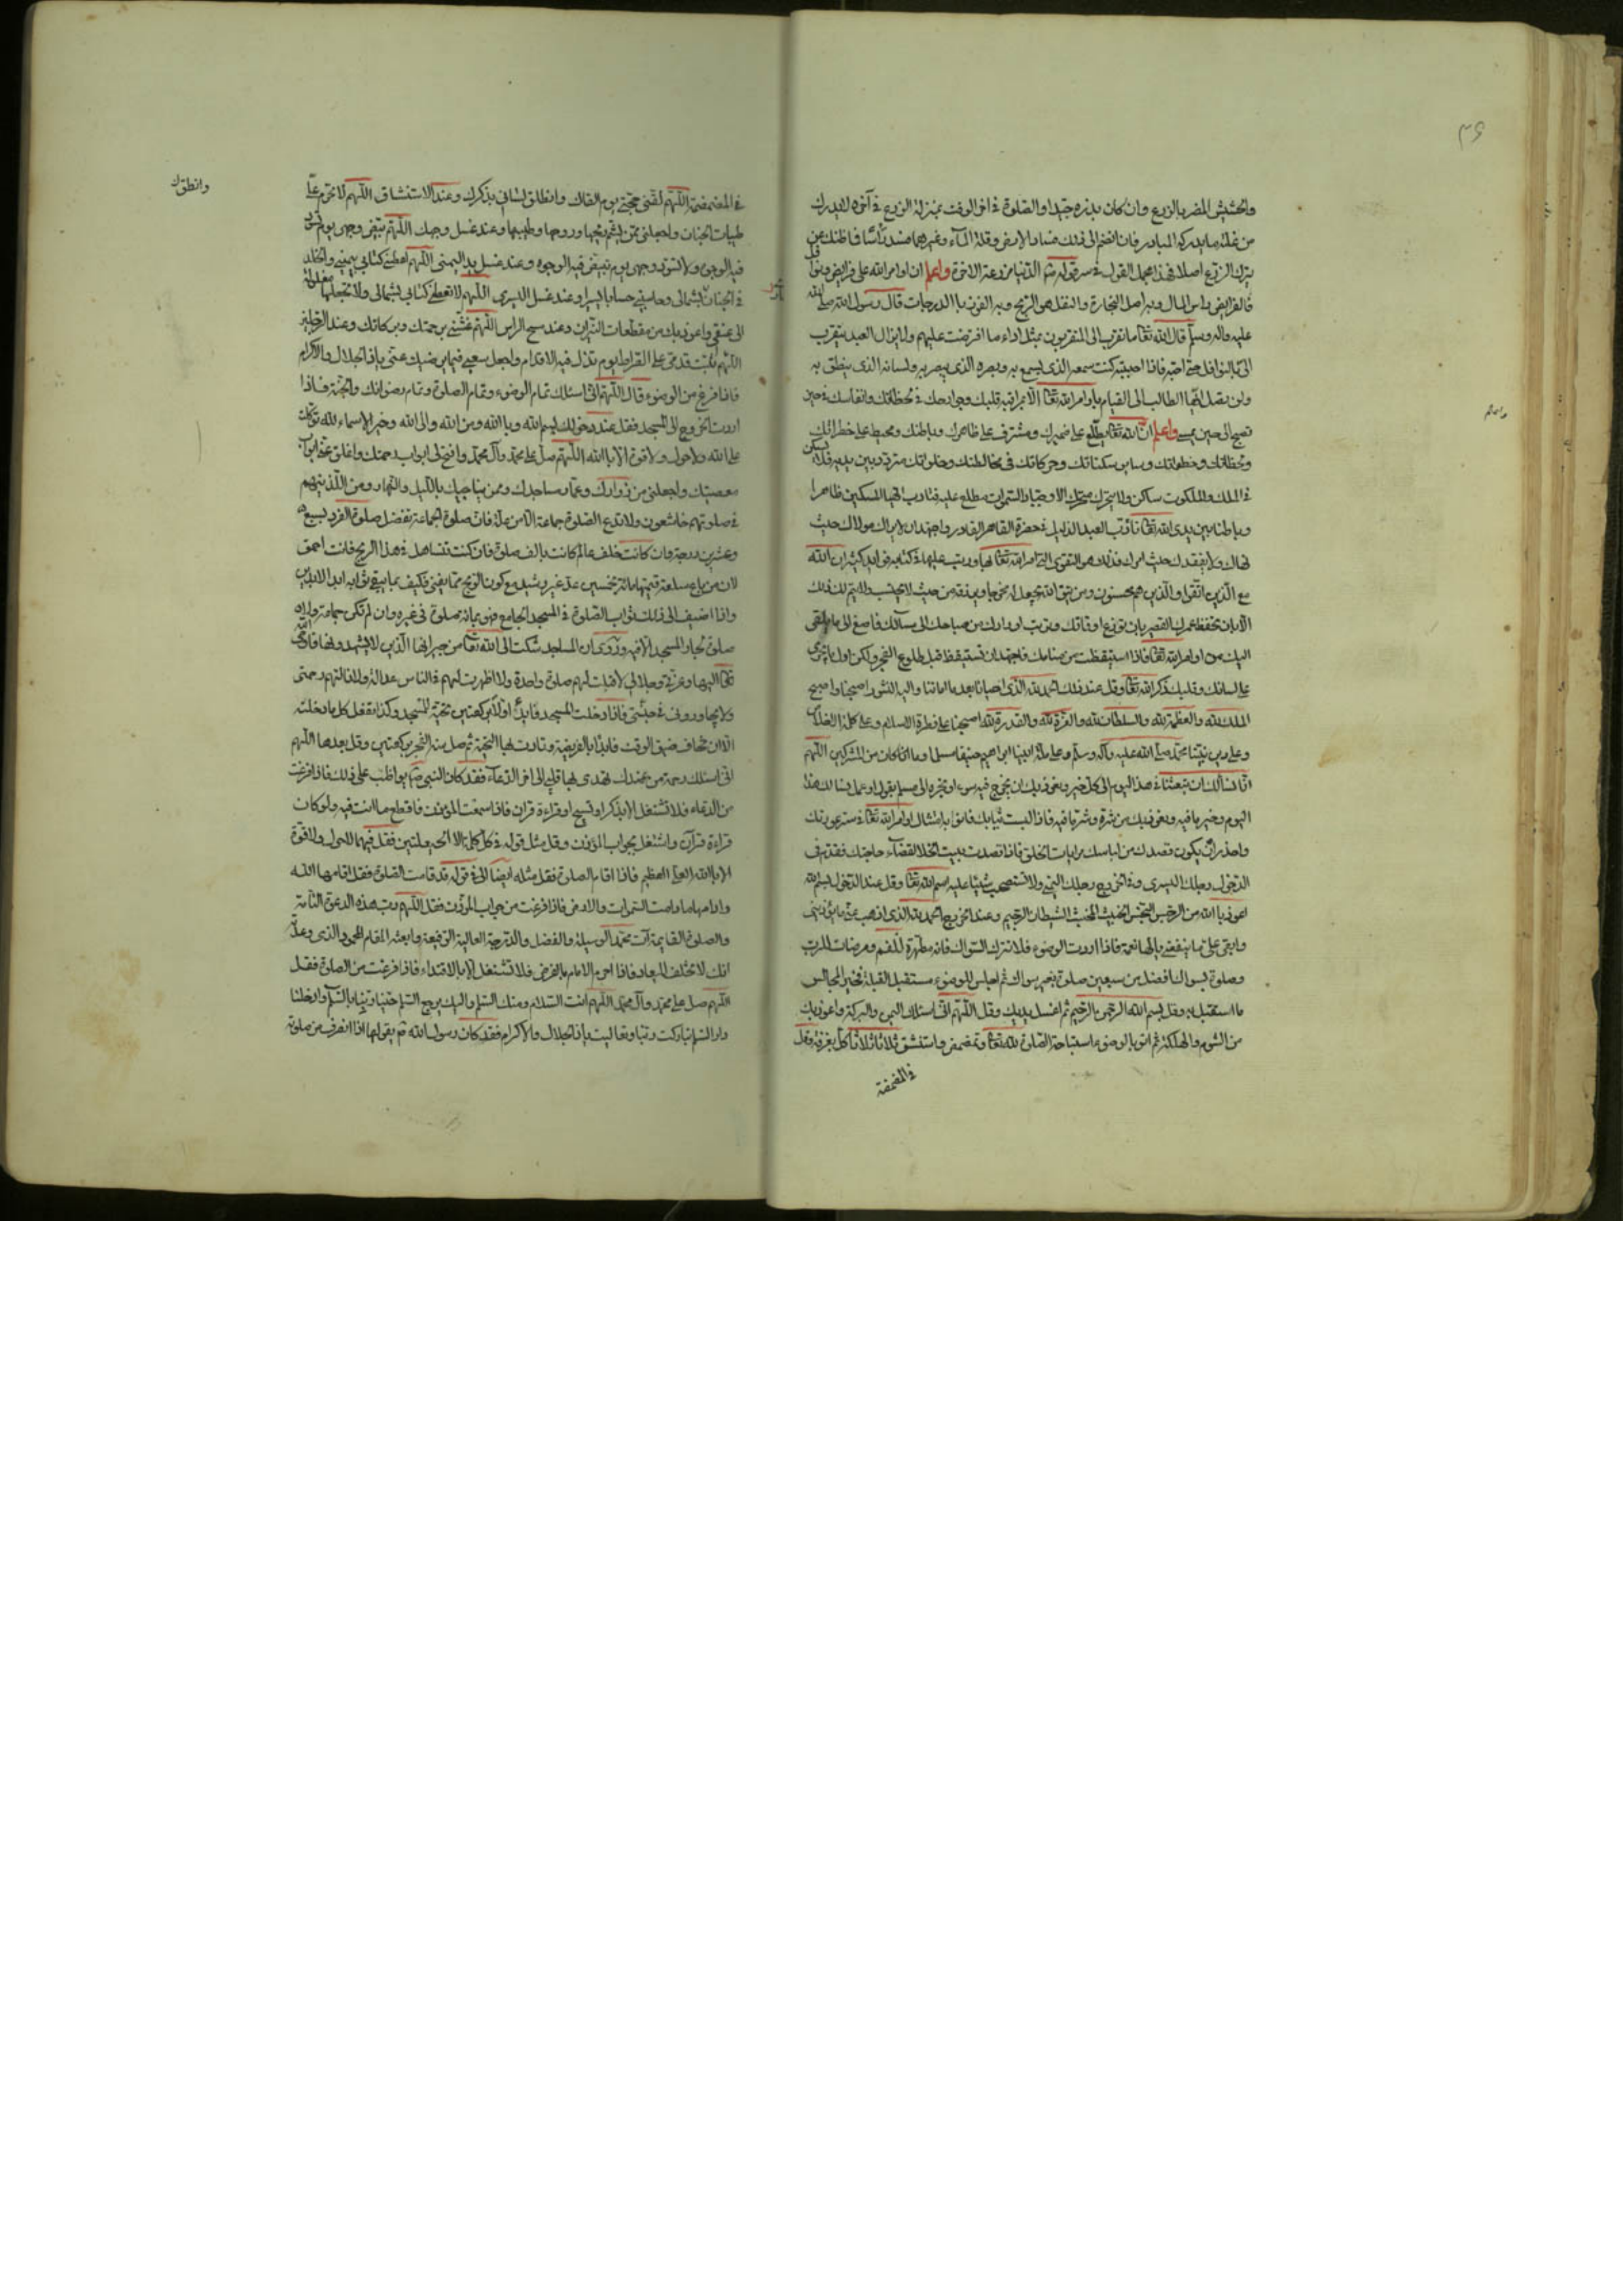 ٣٦
والحشيش المضر بالزرع وان كان بذره جيدا والصلوة في اخر الوقت بمنزلة الزرع في آخره لا يدرك
من غلته ما يدركه المبادر فان انضم الى ذلك فساد الارض وقلة الماء وغيرهما فسد رأسا فما ظنك بمن
يترك الزرع اصلا فهذا مجمل القول في سر قوله الدنيا مزرعة الاخرة واعلم ان اوامر الله على فرايض ونوافل
فالفرايض راس المال وبه اصل التجارة والنفل هو الربح وبه الفوز بالدرجات قال رسول الله صلى الله
عليه وآله وسلم قال الله تعالى ما تقرب الى المتقربون بمثل اداء ما افترضت عليهم ولا يزال العبد يتقرب
الى بالنوافل حتى احبه فاذا احببته كنت سمعه الذي يسمع به وبصره الذي يبصر به ولسانه الذي ينطق به
ولن تصل ايها الطالب الى القيام باوامر الله تعالى الا بمراقبة قلبك وجوارحك في لحظاتك وانفاسك في حين
تصبح الى حين تمسي واعلم ان الله تعالى يطلع على ضميرك ومشرف على ظاهرك وباطنك ومحيط على خطراتك
ولحظاتك وخطواتك وساير سكناتك وحركاتك في مخالطتك وخلواتك متردد بين يديه فلا يسكن
في الملك والملكوت ساكن ولا يتحرك متحرك الا وجبار السموات مطلع عليه فتادب ايها المسكين ظاهرا
وباطنا بين يدي الله تعالى تادب العبد الذليل في حضرة القاهر القادر واجتهد ان لا يراك مولاك حيث
نهاك ولا يفقدك حيث امرك فذلك هو التقوى التي امر الله تعالى بها ورتب عليها في كتابه فوايد كثيرة ان الله
مع الذين اتقوا والذين هم محسنون ومن يتق الله يجعل له مخرجا ويرزقه من حيث لا يحتسب ولا يتم لك ذلك
الا بان تحفظ عمرك القصير بان توزع اوقاتك وترتب اورادك من صباحك الى مسائك فاصغ الى ما يلقى
اليك من اوامر الله تعالى فاذا استيقظت من منامك فاجتهد ان تستيقظ قبل طلوع الفجر وليكن اول ما يجري
على لسانك وقلبك ذكر الله تعالى وقل عند ذلك الحمد لله الذي احيانا بعد ما اماتنا واليه النشور اصبحنا واصبح
الملك لله والعظمة لله والسلطان لله والعزة لله والقدرة لله اصبحنا على فطرة الاسلام وعلى كلمة الاخلاص
وعلى دين نبينا محمد صلى الله عليه وآله وسلم وعلى ملة ابينا ابراهيم حنيفا مسلما وما كان من المشركين اللهم
انا نسألك ان تبعثنا في هذا اليوم الى كل خير ونعوذ بك ان نجترح فيه سوء او نجره الى مسلم
اليوم وخير ما فيه ونعوذ بك من شره وشر ما فيه فاذا لبست ثيابك فانو به امتثال اوامر الله تعالى في ستر عورتك
واحذر ان يكون قصدك من لباسك مرايات الخلق فاذا قصدت بيت الخلا لقضاء حاجتك فقدم في
الدخول رجلك اليسرى وفي الخروج رجلك اليمنى ولا تستصحب شيئا عليه اسم الله تعالى وقل عند الدخول بسم الله
اعوذ بالله من الرجس النجس الخبيث المخبث الشيطان الرجيم وعند الخروج الحمد لله الذي اذهب عني ما يؤذيني
وابقى على ما ينفعني فاذا اردت الوضوء فلا تترك السواك فانه مطهرة للفم ومرضات للرب
وصلوة بسواك افضل من سبعين صلوة بغير سواك ثم اجلس للوضوء مستقبل القبلة فخير المجالس
ما استقبل به وقل بسم الله الرحمن الرحيم ثم اغسل يديك وقل اللهم اني اسئلك اليمن والبركة واعوذ بك
من الشوم والهلكة ثم انو بالوضوء استباحة الصلوة لله تعالى وتمضمض واستنشق ثلاثا ثلاثا كل بغرفة وقل
في المضمضة
في المضمضة اللهم لقني حجتي يوم القاك وانطلق لساني بذكرك وعند الاستنشاق اللهم لا تحرم علي
طيبات الجنان واجعلني ممن يشم ريحها وروحها وطيبها وعند غسل وجهك اللهم بيض وجهي يوم تسود
فيه الوجوه ولا تسود وجهي يوم تبيض فيه الوجوه وعند غسل يد اليمنى اللهم اعطني كتابي بيميني والخلد
في الجنان بشمالي وحاسبني حسابا يسيرا وعند غسل اليسرى اللهم لا تعطني كتابي بشمالي ولا تجعلها مغلولة
الى عنقي واعوذ بك من مقطعات النيران وعند مسح الراس اللهم غشني برحمتك وبركاتك وعند الرجلين
اللهم ثبت قدمي على الصراط يوم تزل فيه الاقدام واجعل سعيي فيما يرضيك عني يا ذا الجلال والاكرام
فاذا فرغ من الوضوء قال اللهم اني اسئلك تمام الوضوء وتمام الصلوة وتمام رضوانك والجنة فاذا
اردت الخروج الى المسجد فقل عند دخولك بسم الله وبالله ومن الله والى الله وخير الاسماء لله توكلت
على الله ولا حول ولا قوة الا بالله اللهم صل على محمد وآل محمد وافتح لي ابواب رحمتك واغلق عني ابواب
معصيتك واجعلني من زوارك وعمار مساجدك وممن يناجيك بالليل والنهار ومن الذين هم
في صلوتهم خاشعون ولا تدع الصلوة جماعة فان صلوة الجماعة تفضل صلوة الفرد بسبع
وعشرين درجة وان كانت خلف عالم كانت بالف صلوة فان كنت تتساهل في هذا الربح فانت احمق
لان من باع سلعة قيمتها مائة بخمسين عد غير رشيد مع كون الربح مما يفنى فكيف بما يبقى ثوابه ابد الابدين
واذا اضيف الى ذلك ثواب الصلوة في المسجد الجامع فهو بمائة صلوة في غيره وان لم تكن جماعة
صلوة لجار المسجد الا فيه وروي ان المساجد شكت الى الله تعالى من جيرانها الذين لا يشهدونها فاوحى الله
تعالى اليها وعزتي وجلالي لا قبلت لهم صلوة واحدة ولا اظهرت لهم في الناس عدالة ولا نالتهم رحمتي
ولا يجاوروني في جنتي فاذا دخلت المسجد فابدأ اولا بركعتين تحية المسجد وكذا تفعل كل ما دخلته
الا ان تخاف ضيق الوقت فابدأ بالفريضة وتادت بها التحية ثم صل سنة الفجر ركعتين وقل بعدها اللهم
اني اسئلك رحمة من عندك تهدي بها قلبي الى اخر الدعاء فقد كان النبي ص يواظب على ذلك فاذا فرغت
من الدعاء فلا تشتغل الا بذكر او تسبيح او قراءة قرآن فاذا سمعت المؤذن فاقطع ما انت فيه ولو كان
قراءة قرآن واشتغل بجواب المؤذن وقل مثل قوله في كل كلمة الا الحيعلتين فقل فيهما لا حول ولا قوة
الا بالله العلي العظيم فاذا اقام الصلوة فقل مثله ايضا الا في قوله قد قامت الصلوة فقل اقامها الله
وادامها ما دامت السموات والارض فاذا فرغت من جواب المؤذن فقل اللهم رب هذه الدعوة التامة
والصلوة القايمة آت محمد الوسيلة والفضل والدرجة العالية الرفيعة وابعثه المقام المحمود الذي وعدته
انك لا تخلف الميعاد فاذا احرم الامام بالفرض فلا تشتغل الا بالاقتداء فاذا فرغت من الصلوة فقل
اللهم صل على محمد وآل محمد اللهم انت السلام ومنك السلام واليك يرجع السلم حينا ربنا بالسلام وادخلنا
دار السلم تباركت ربنا وتعاليت يا ذا الجلال والاكرام فقد كان رسول الله ص يقولها اذا انصرف من صلوته